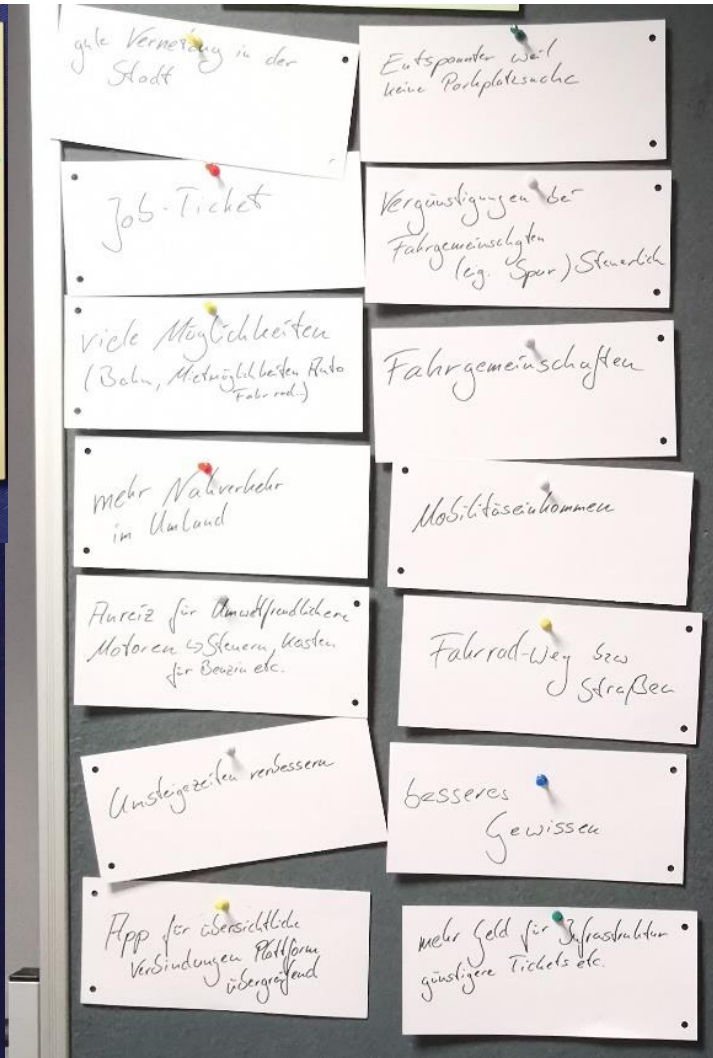 gute Vernetzung in der
Stadt
Job-Ticket
viele Möglichkeiten
(Bahn, Mietmöglichkeiten Auto
Fahrrad..)
mehr Nahverkehr
im Umland
Anreiz für Umweltfreundlichere
Motoren ↳ Steuern, Kosten
für Benzin etc.
Umsteigezeiten verbessern
App für übersichtliche
Verbindungen Plattform
übergreifend
Entspannter weil
keine Parkplatzsuche
Vergünstigungen bei
Fahrgemeinschaften
(eig. Spur) Steuerlich
Fahrgemeinschaften
Mobilitäseinkommen
Fahrrad-Weg bzw
Straßen
besseres
Gewissen
mehr Geld für Infrastruktur
günstigere Tickets etc.